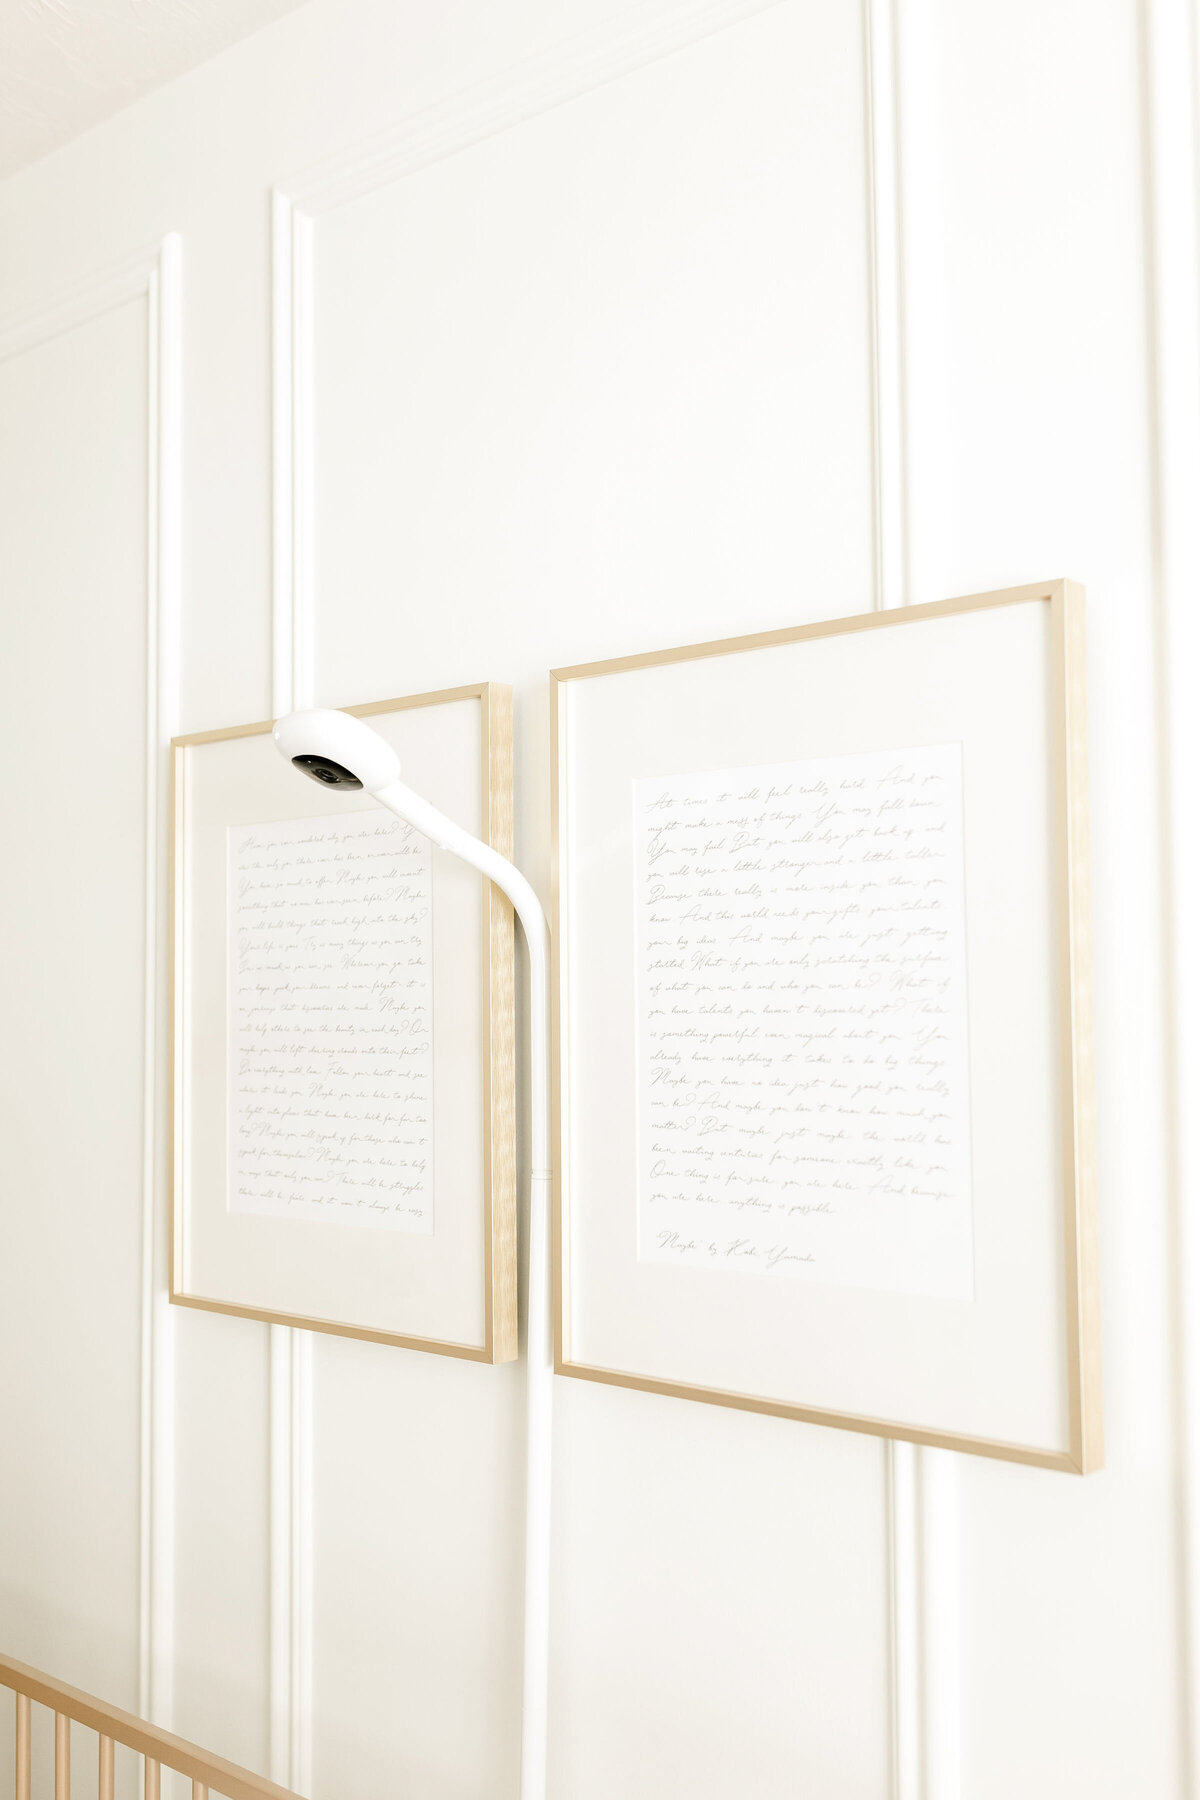 Have you ever wondered why you are here? Y
are the only you there ever has been or ever will be.
You have so much to offer. Maybe you will invent
something that no one has ever seen before? Maybe
you will build things that reach high into the sky?
Your life is your. Try as many things as you can try
See as much as you can see. Wherever you go take
your hopes pack your dreams and never forget - it is
on journeys that discoveries are made. Maybe you
will help others to see the beauty in each day? Or
maybe you will lift dancing clouds onto their feet?
Do everything with love. Follow your heart and see
where it leads you. Maybe you are here to shine
a light into places that have been dark for far too
long? Maybe you will speak up for those who can't
speak for themselves? Maybe you are here to help
in ways that only you can? There will be struggles
there will be fears and it won't always be easy
At times it will feel really hard. And you
might make a mess of things. You may fall down.
You may fail. But you will also get back up and
you will rise a little stronger and a little taller.
Because there really is more inside you than you
know. And this world needs your gifts your talents
your big ideas. And maybe you are just getting
started. What if you are only scratching the surface
of what you can do and who you can be? What if
you have talents you haven't discovered yet? There
is something powerful even magical about you. You
already have everything it takes to do big things.
Maybe you have no idea just how good you really
can be? And maybe you don't know how much you
matter? But maybe just maybe the world has
been waiting centuries for someone exactly like you.
One thing is for sure, you are here. And because
you are here, anything is possible.
"Maybe" by Kobi Yamada